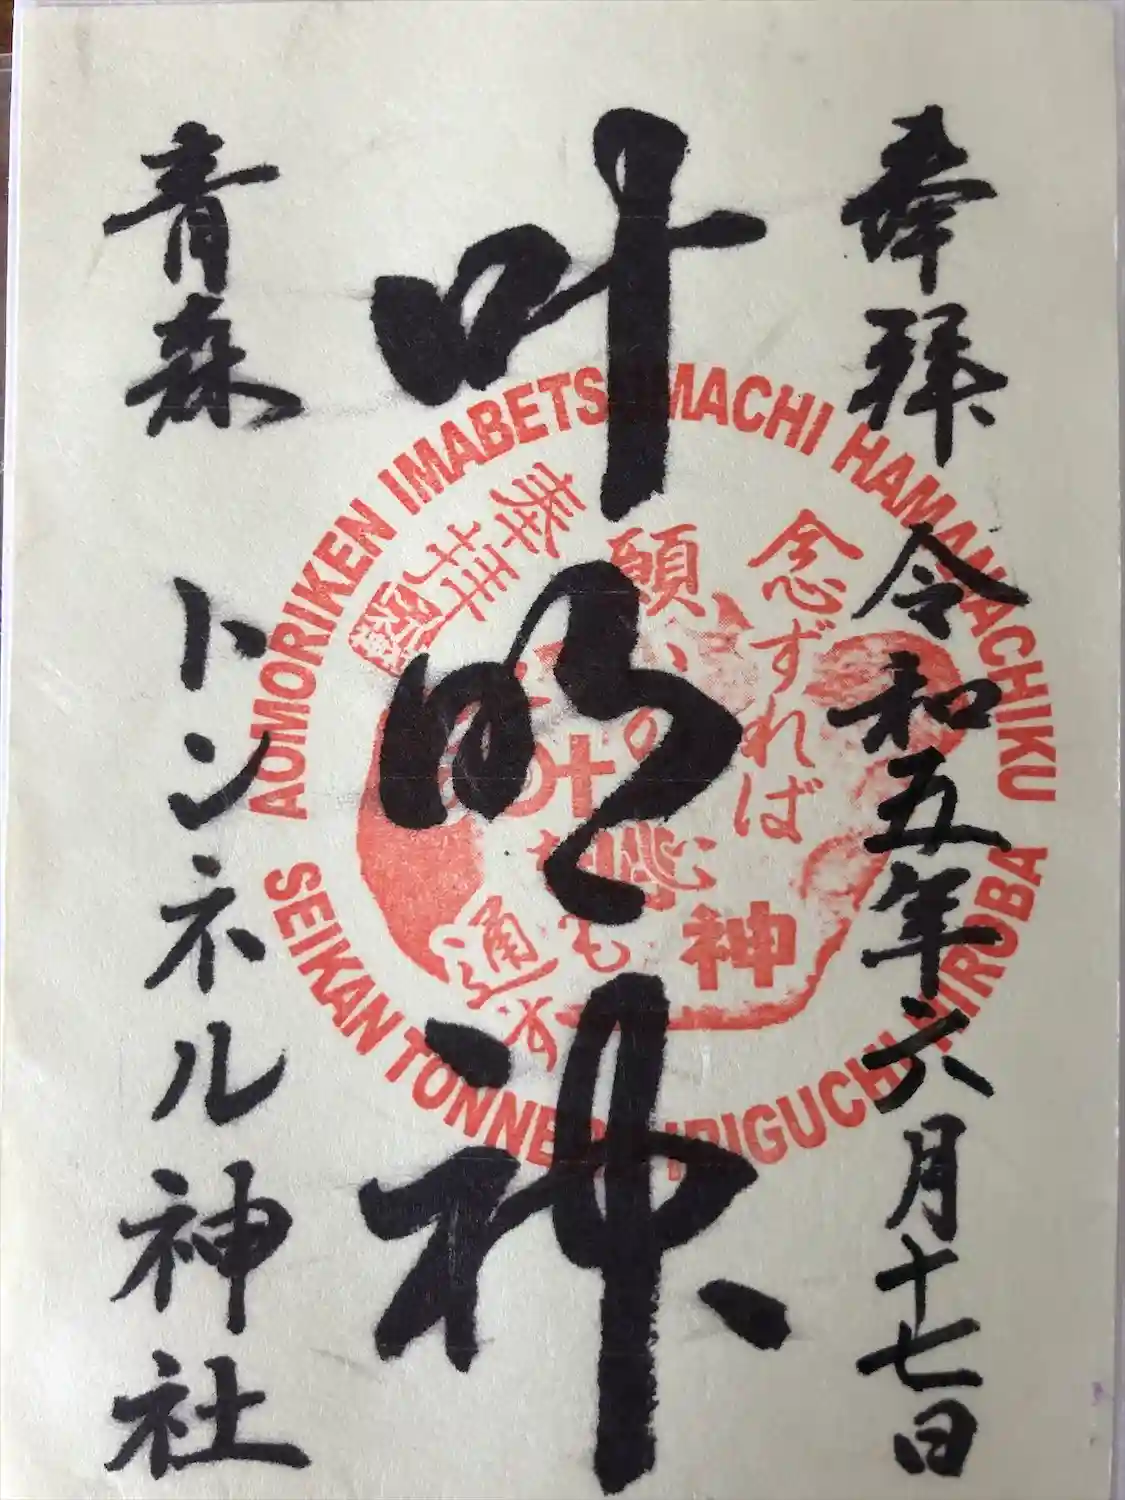 奉拝 令和五年六月十七日
叶明神
青森 トンネル神社
AOMORIKEN IMABETSUMACHI HAMANACHIKU
SEIKAN TONNEL IRIGUCHI HIROBA
念ずれば
願いの
叶
神
通ず
奉拝